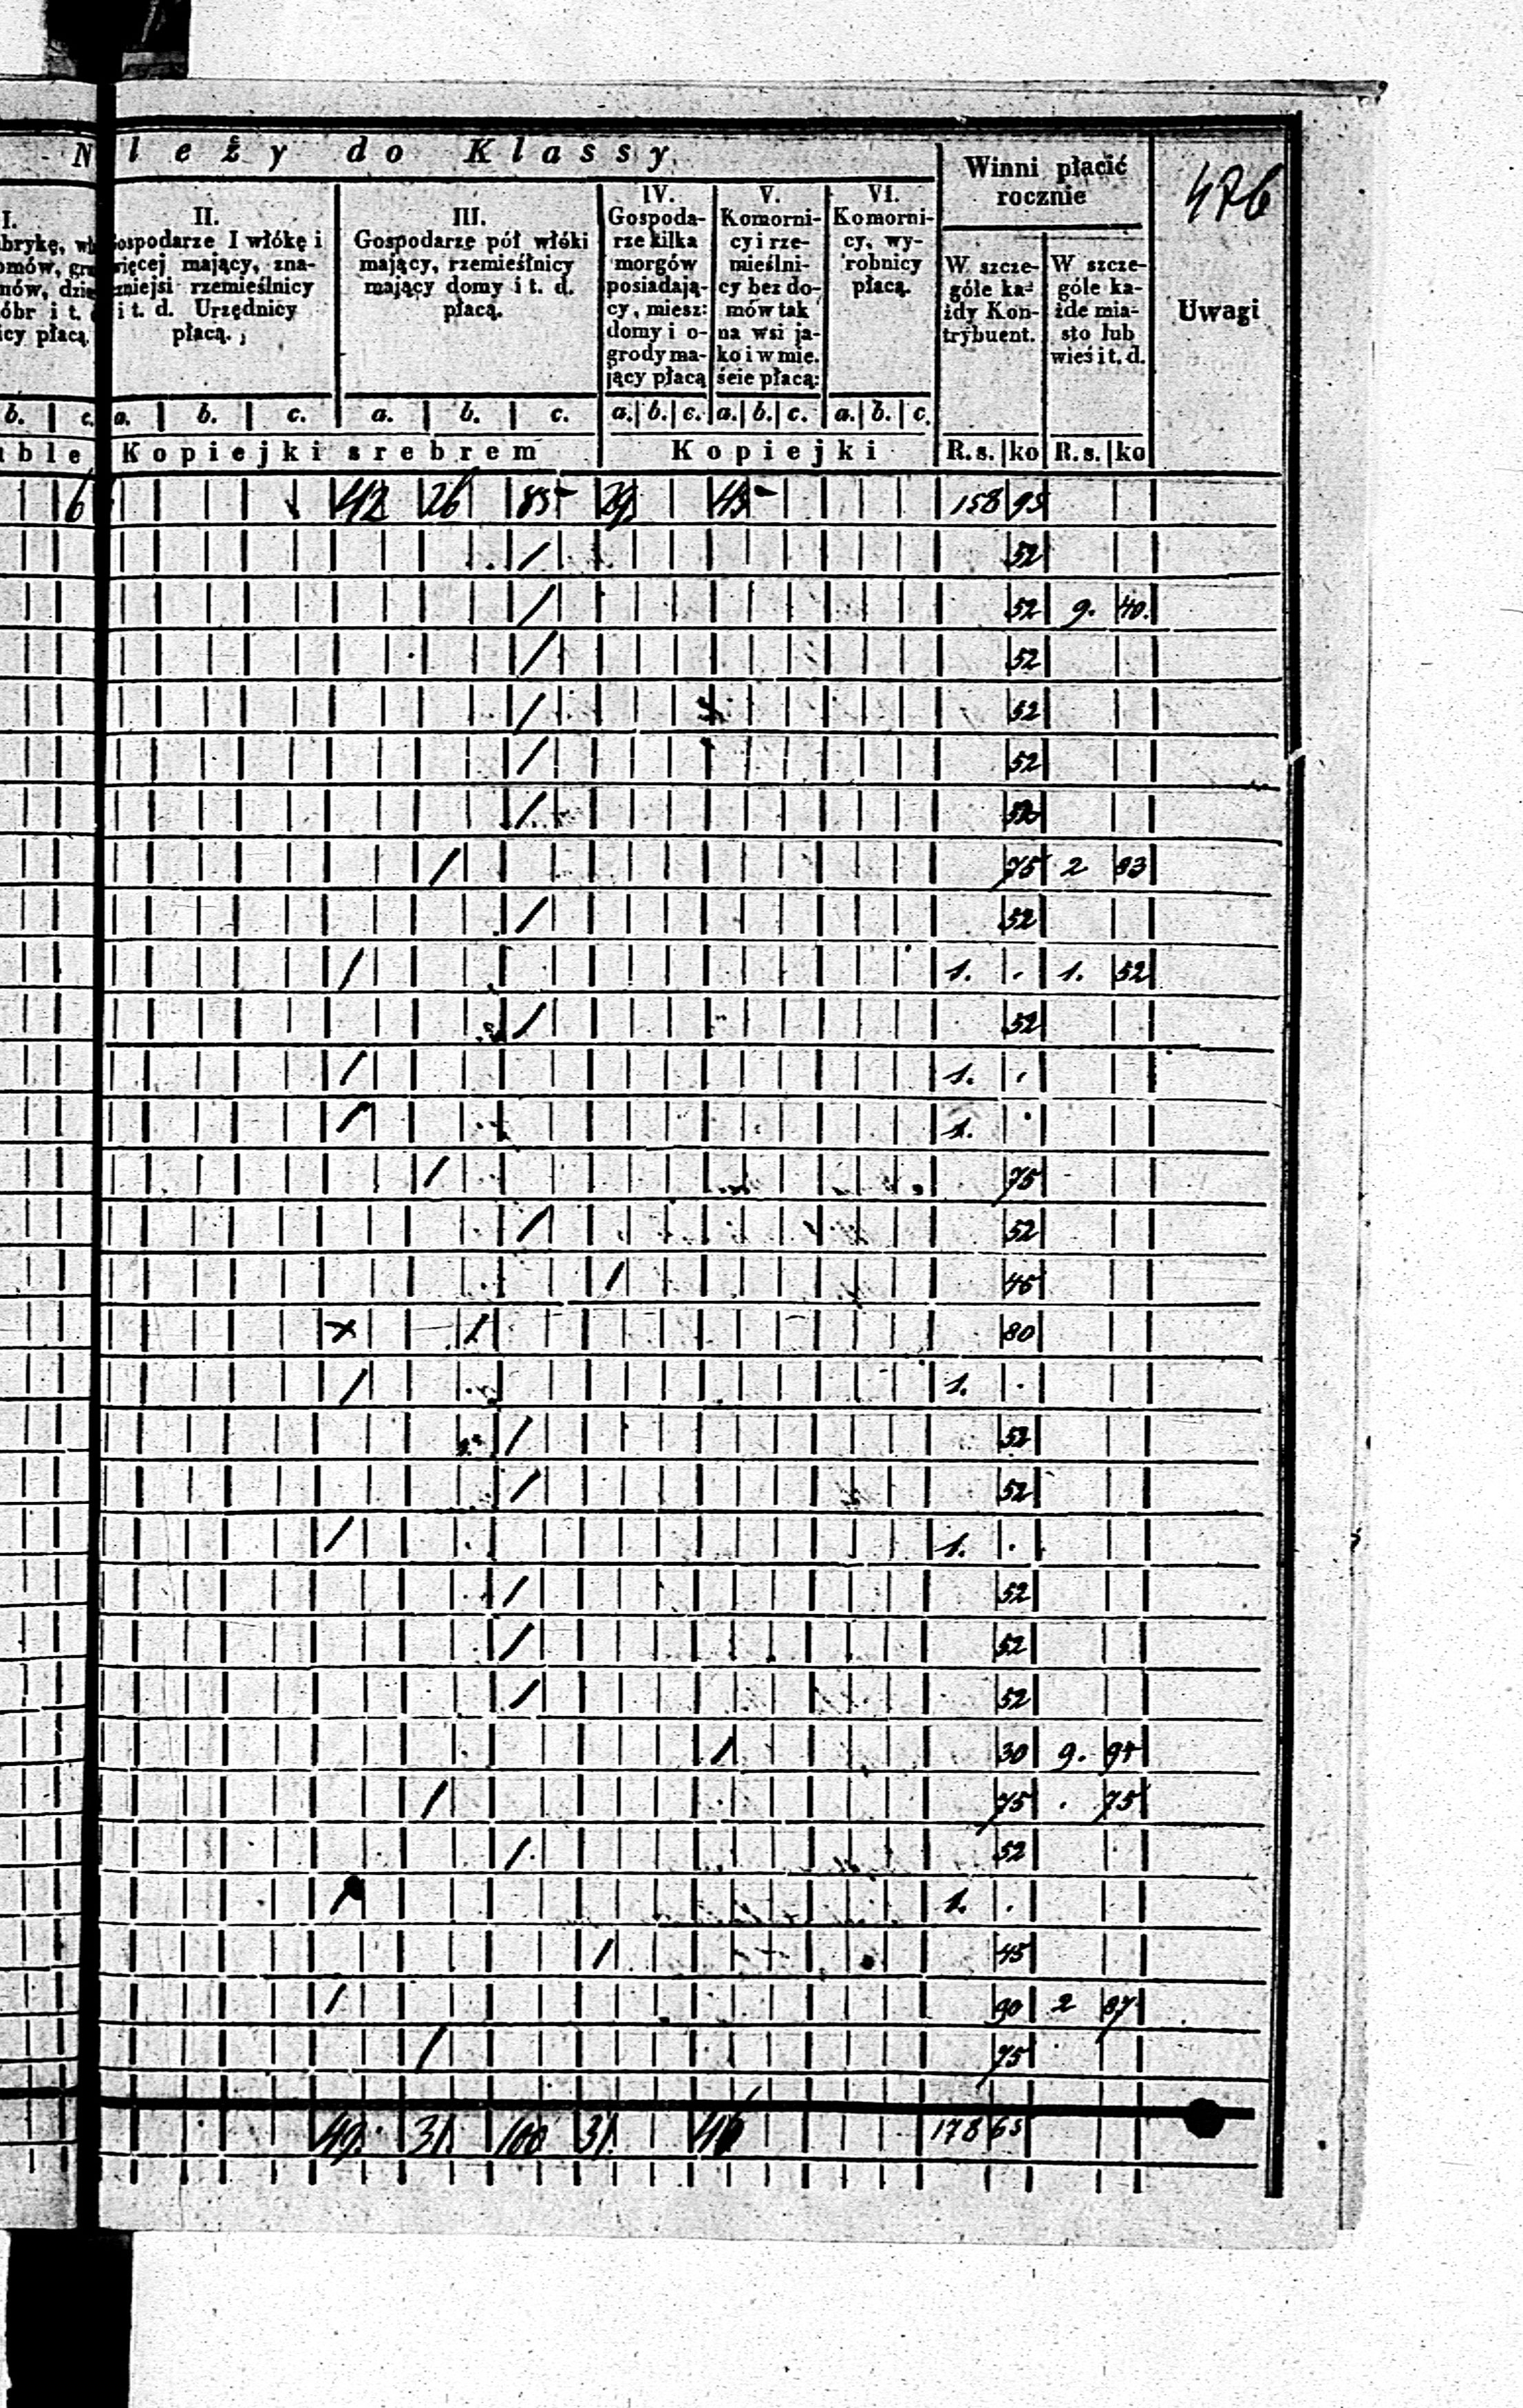 476
N leży do Klassy
Winni płacić rocznie
Uwagi
I.
brykę, wł
omów, gru
nów, dzie
óbr i t.
icy płacą
II.
Gospodarze I włókę i
więcej mający, zna-
czniejsi rzemieślnicy
i t. d. Urzędnicy
płacą.
III.
Gospodarze pół włóki
mający, rzemieślnicy
mający domy i t. d.
płacą.
IV.
Gospoda-
rze kilka
morgów
posiadają-
cy, miesz:
domy i o-
grody ma-
jący płacą
V.
Komorni-
cy i rze-
mieślni-
cy bez do-
mów tak
na wsi ja-
ko i w mie.
ście płacą:
VI.
Komorni-
cy, wy-
robnicy
płacą.
W szcze-
góle ka-
żdy Kon-
trybuent.
W szcze-
góle ka-
żde mia-
sto lub
wieś i t. d.
b. c. a. b. c. a. b. c. a. b. c. a. b. c. a. b. c.
uble Kopiejki srebrem Kopiejki R.s. ko R.s. ko
6 42 26 85 29 45 158 95
/ 52
/ 52 9. 40.
/ 52
/ 52
/ 52
/ 52
/ 75 2 83
/ 52
/ 1. . 1. 52
/ 52
/ 1. .
/ 1. .
/ 75
/ 52
/ 45
80
/ 1. .
/ 52
/ 52
/ 1. .
/ 52
/ 52
/ 52
/ 30 9. 94
/ 75 . 75
/ 52
/ 1. .
/ 45
/ 90 2 87
/ 75
49. 31. 100 31. 178 65